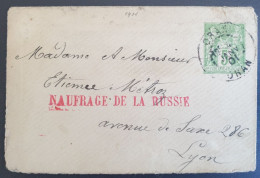 1901
ORAN
ORAN
Madame A Monsieur
Etienne Métroz
NAUFRAGE DE LA RUSSIE
avenue de Saxe 286
Lyon